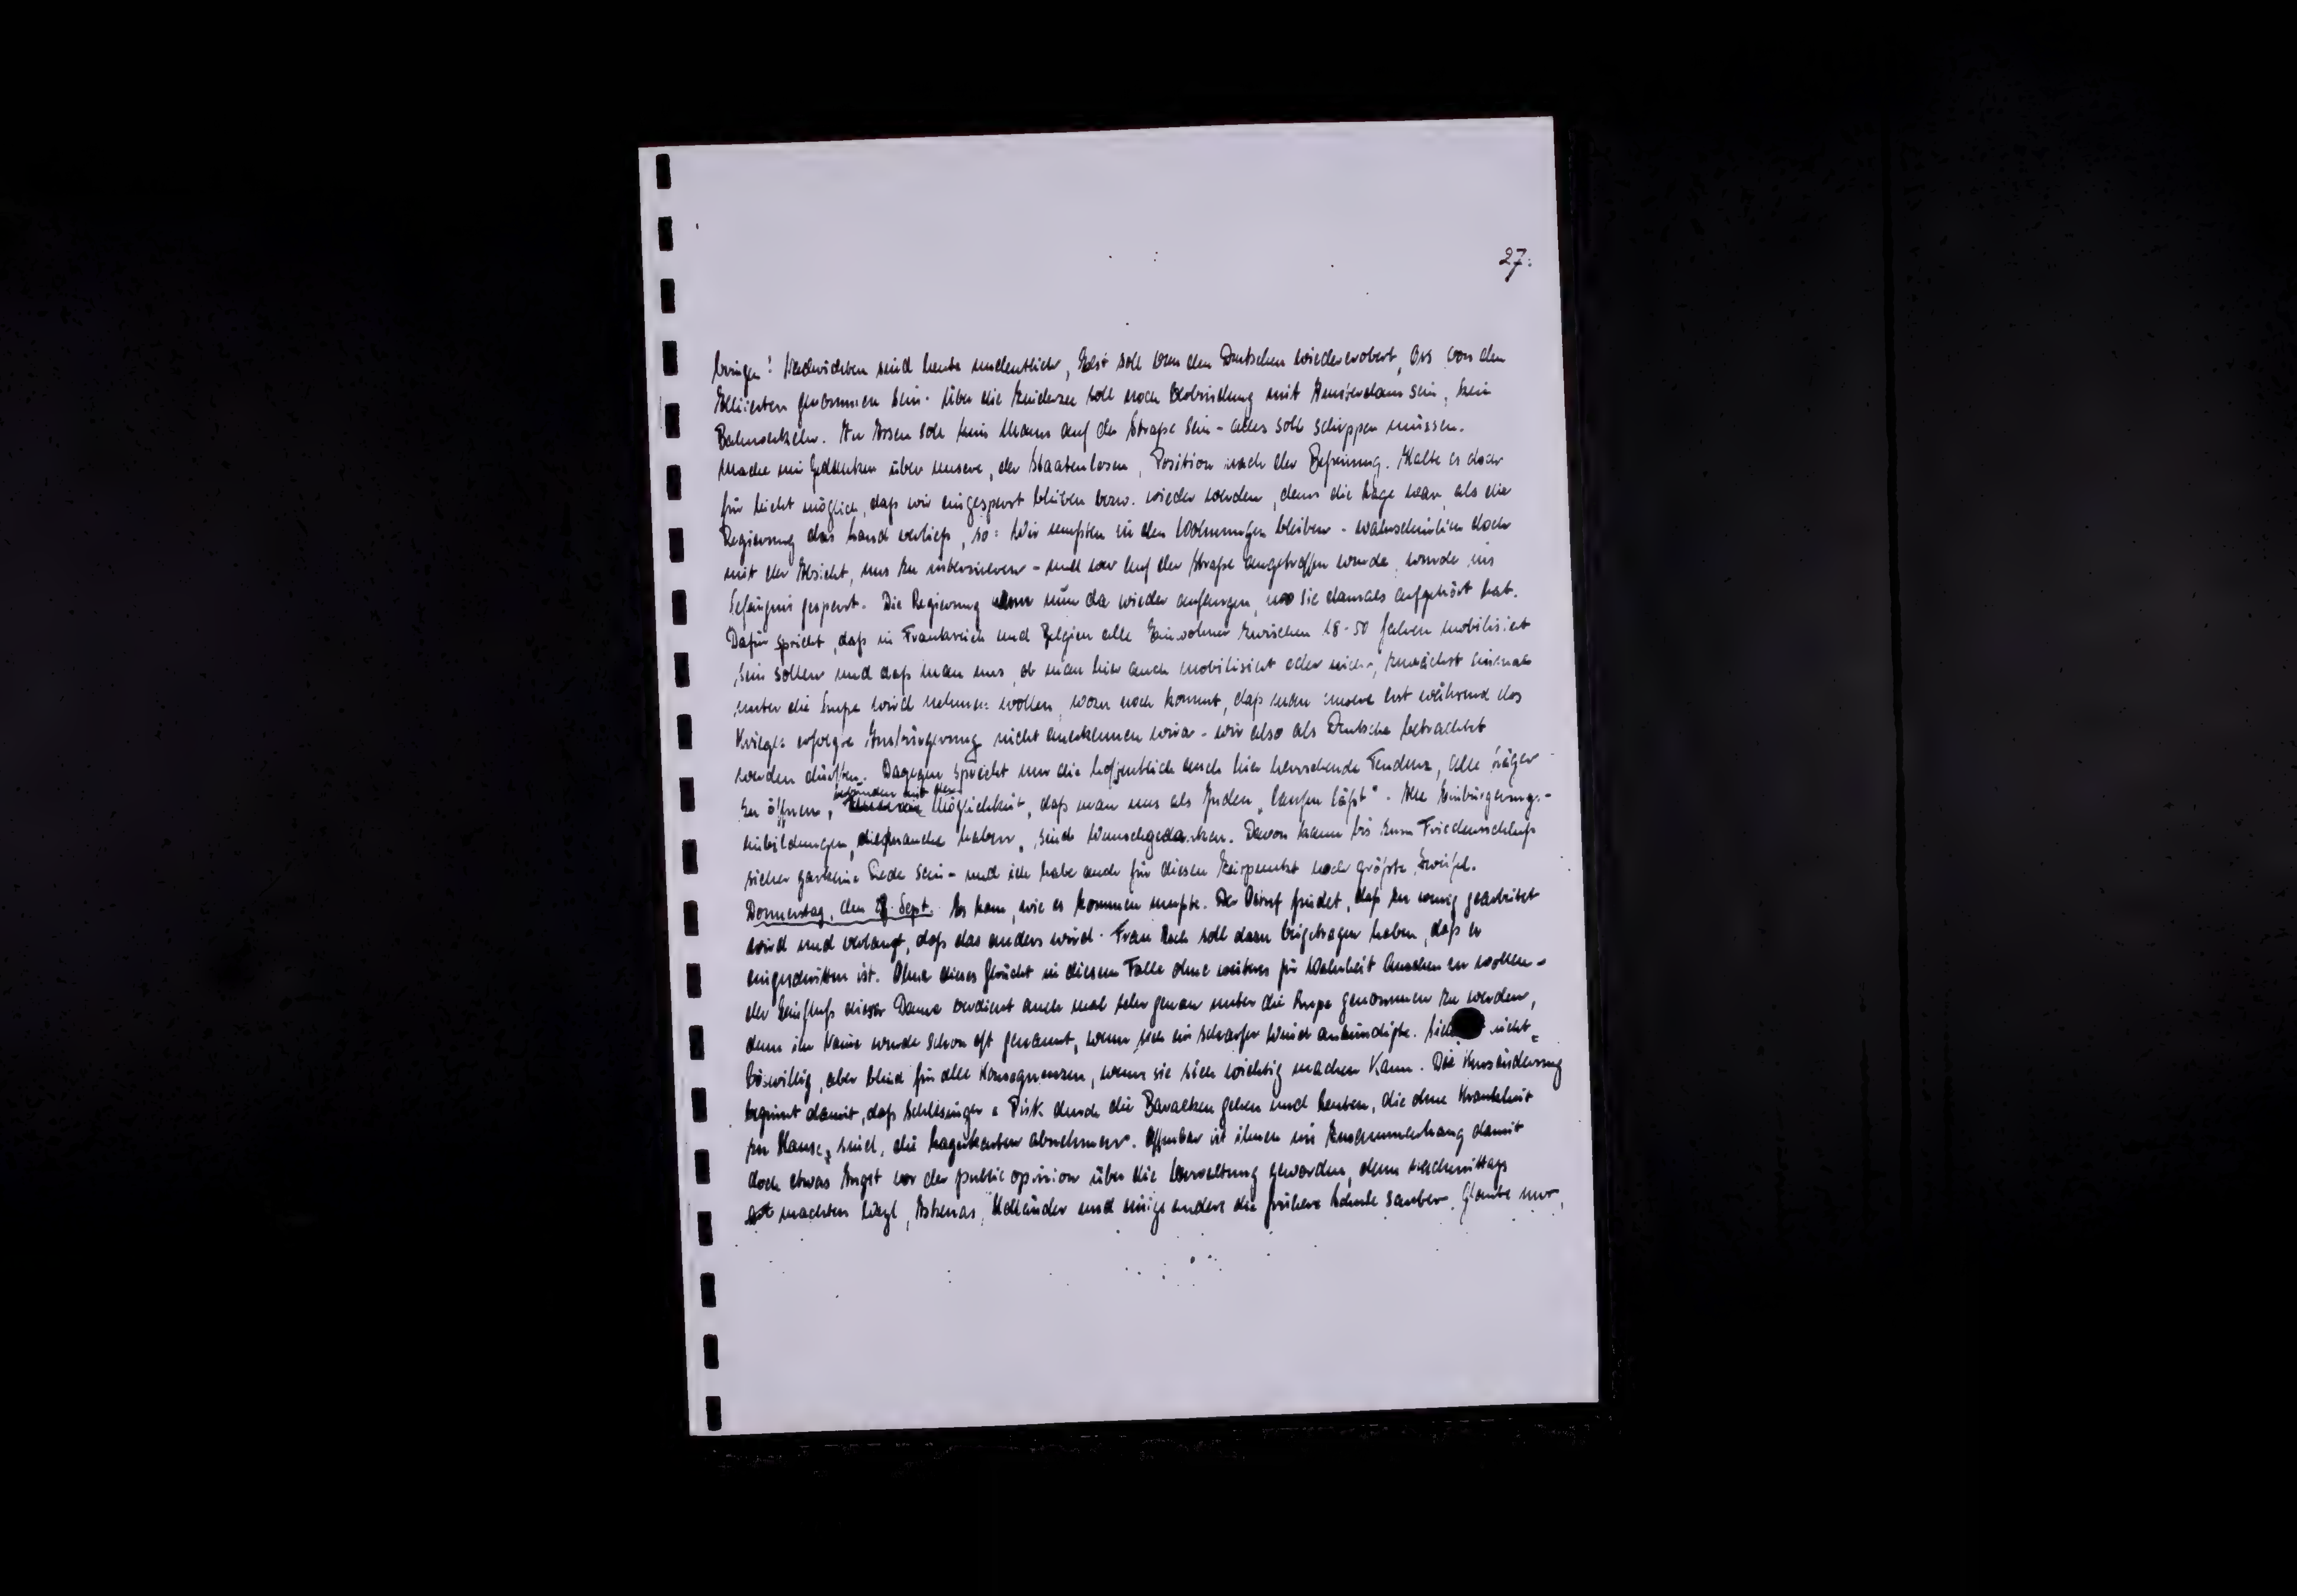 27.
bringen! Nachrichten sind heute undeutlich, soll von den Deutschen wiedererobert, Oss von den
Alliierten genommen sein. Über die Zuidersee soll noch Verbindung mit Amsterdam sein, kein
Bahnverkehr. In Assen soll kein Mann auf der Straße sein - alles soll schippen müssen.
Mache mir Gedanken über unsere, der Staatenlosen, Position nach der Befreiung. Halte es doch
für leicht möglich, daß wir eingesperrt bleiben bezw. wieder werden, denn die Lage war, als die
Regierung das Land verließ, so: Wir mußten in den Wohnungen bleiben - wahrscheinlich doch
mit der Absicht, uns zu internieren - und wer auf der Straße angetroffen wurde, wurde ins
Gefängnis gesperrt. Die Regierung kann nun da wieder anfangen, wo sie damals aufgehört hat.
Dafür spricht, daß in Frankreich und Belgien alle Einwohner zwischen 18-50 Jahren mobilisiert
sein sollen und daß man uns, ob man hier auch mobilisiert oder nicht, zunächst einmal
unter die Lupe wird nehmen wollen, wozu noch kommt, daß man unsere erst während des
Krieges erfolgte Ausbürgerung nicht anerkennen wird - wir also als Deutsche betrachtet
werden dürften. Dagegen spricht nur die hoffentlich auch hier herrschende Tendenz, alle Läger
zu öffnen, verbunden mit der Möglichkeit, daß man uns als Juden „laufen läßt". Alle Einbürgerungs-
einbildungen, die manche haben, sind Wunschgedanken. Davon kann bis zum Friedensschluß
sicher garkeine Rede sein - und ich habe auch für diesen Zeitpunkt noch größte Zweifel.
Donnerstag, den Sept. Es kam, wie es kommen mußte. Der findet, daß zu wenig gearbeitet
wird und verlangt, daß das anders wird. Frau soll dazu beigetragen haben, daß er
eingeschritten ist. Ohne dieses Gerücht in diesem Falle ohne weiteres für Wahrheit ansehen zu wollen -
der Einfluß dieser Dame verdient auch mal sehr genau unter die Lupe genommen zu werden,
denn ihr Name wurde schon oft genannt, wenn sich ein scharfer Wind ankündigte. nicht
böswillig, aber blind für alle Konsequenzen, wenn sie sich wichtig machen kann. Die Kursänderung
beginnt damit, daß Schlesinger & Pisk durch die Baracken gehen und Leuten, die ohne Krankheit
zu Hause sind, die Lagerkarten abnehmen. Offenbar ist ihnen im Zusammenhang damit
doch etwas Angst vor der public opinion über die Verwaltung geworden, denn nachmittags
machten und einige andere die frühere Schule sauber. Glaube nur,